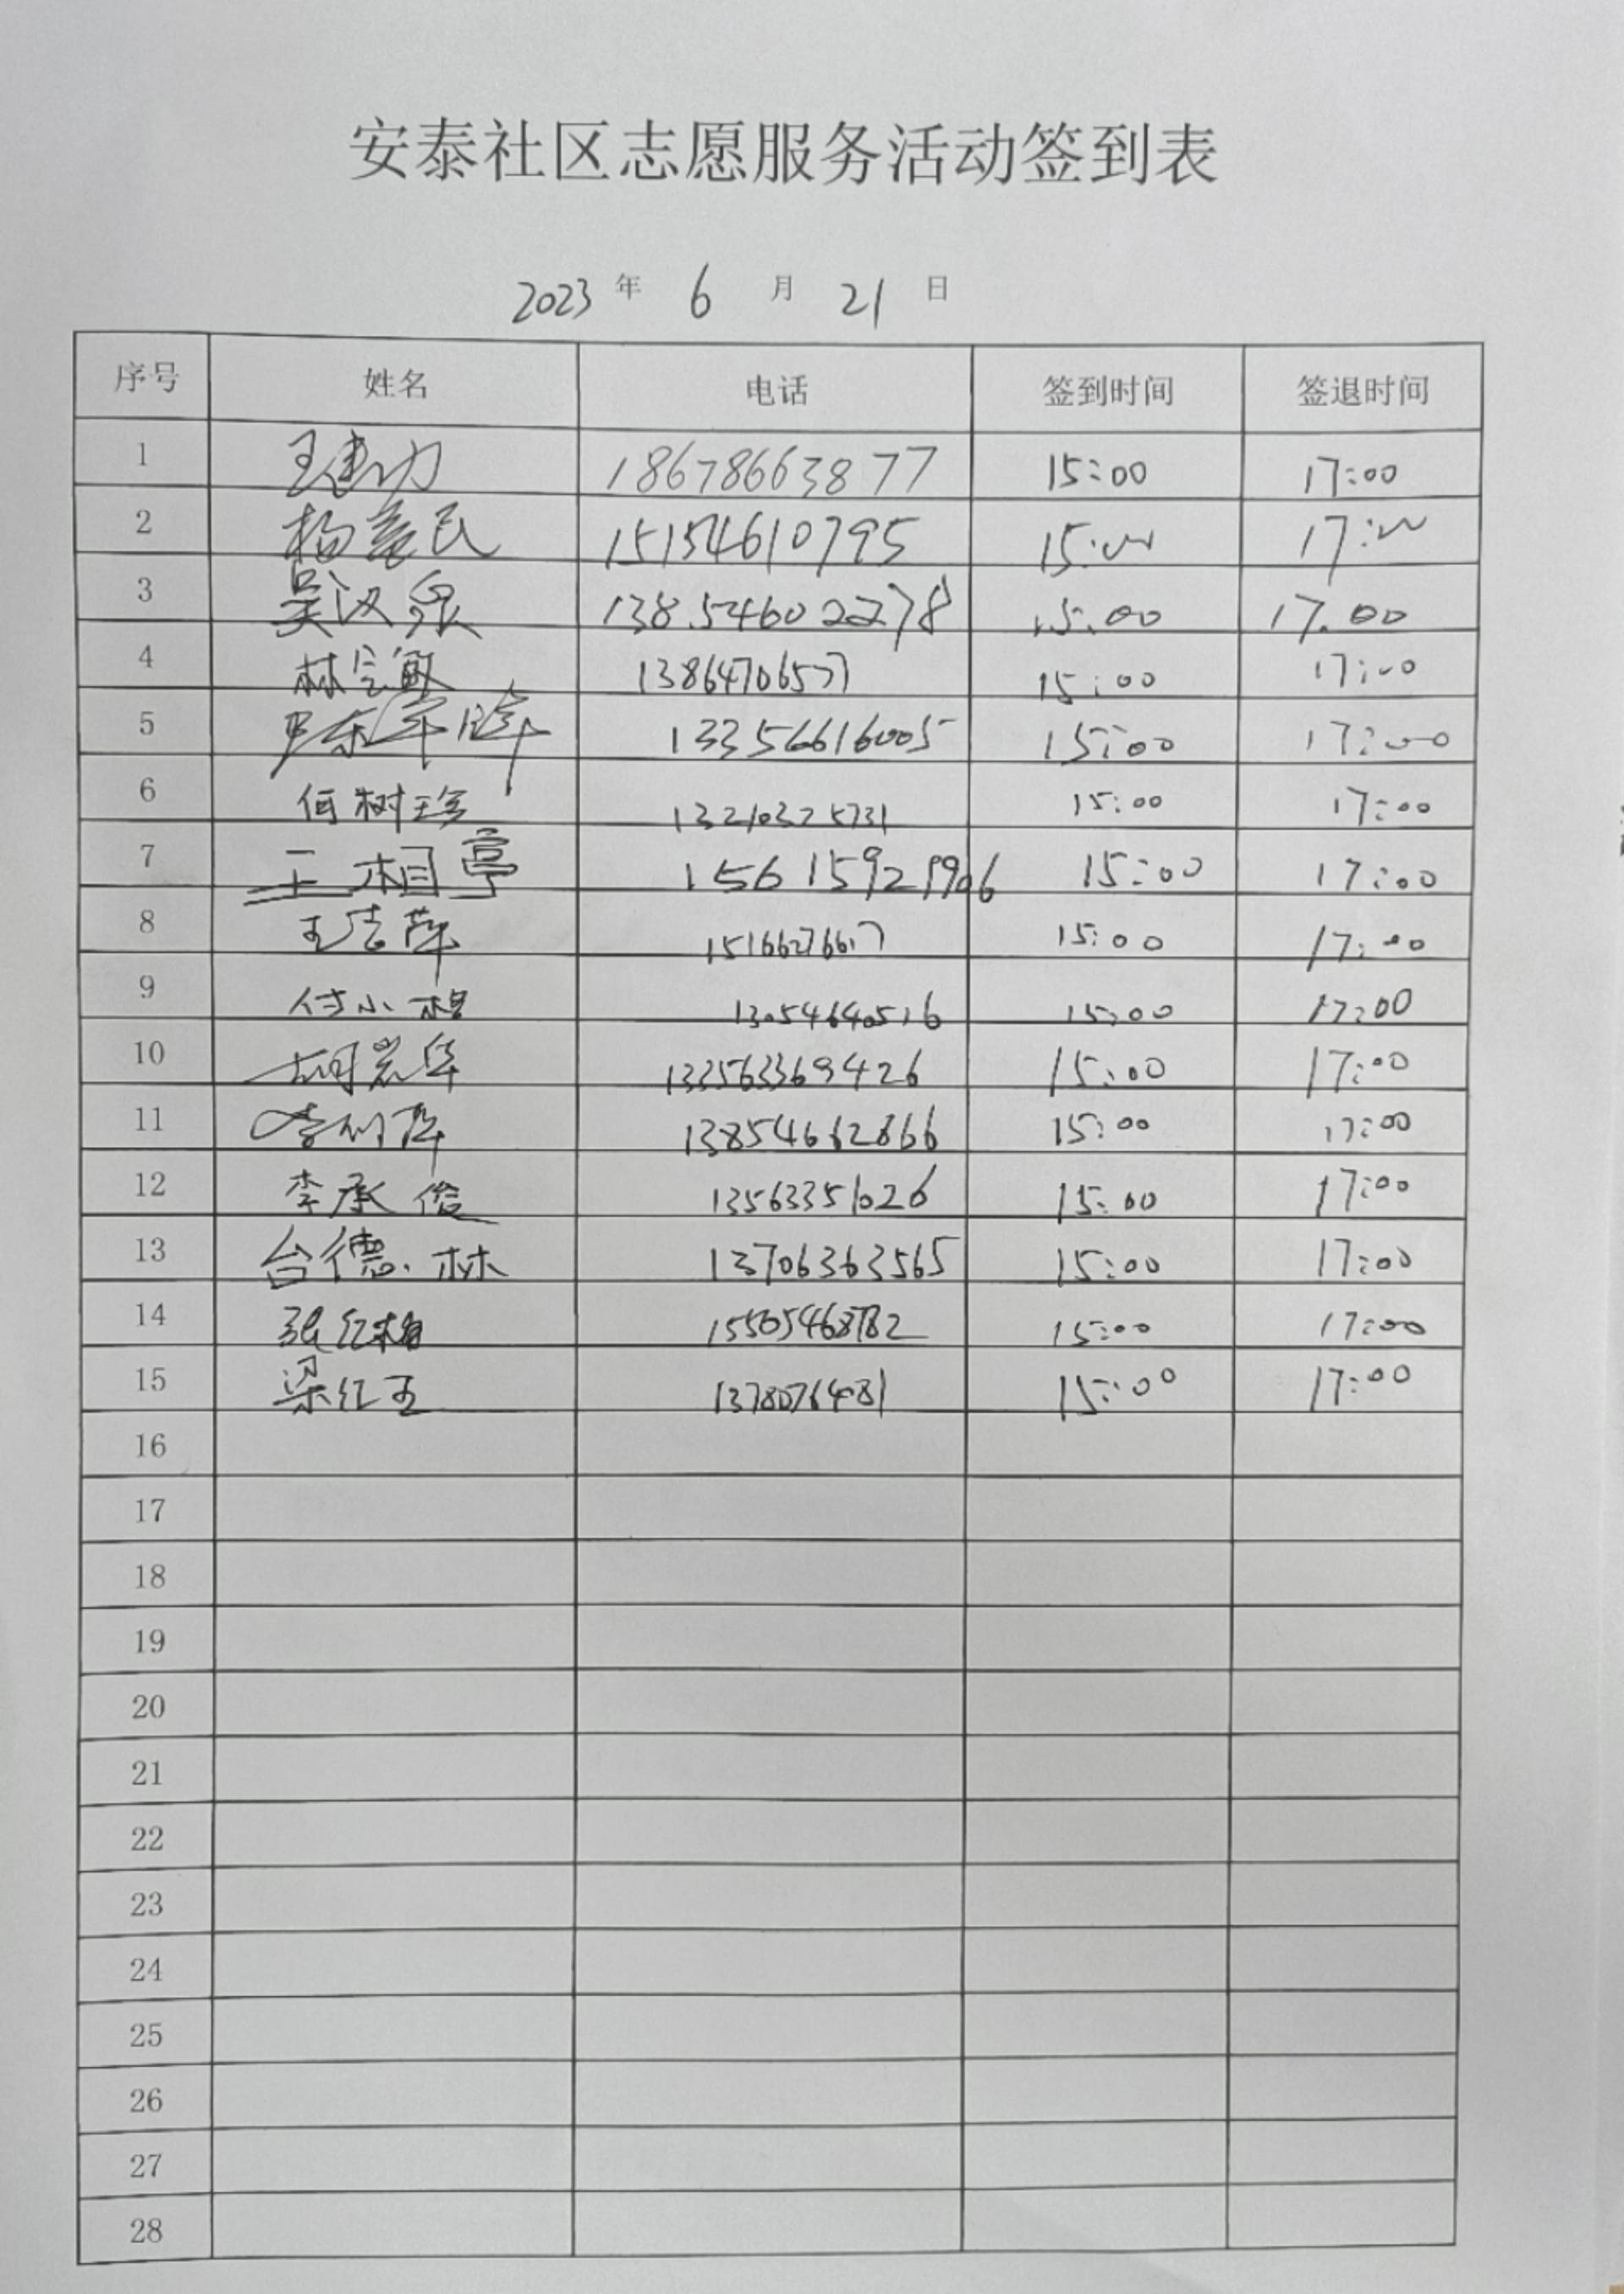 安泰社区志愿服务活动签到表
2023 年 6 月 21 日
序号 姓名 电话 签到时间 签退时间
1 王建功 18678663877 15:00 17:00
2 杨益民 15154610795 15:00 17:00
3 吴汉泉 13854602278 15:00 17:00
4 林宝敏 13864706577 15:00 17:00
5 13356616005 15:00 17:00
6 何树珍 13210325731 15:00 17:00
7 王相亭 15615921906 15:00 17:00
8 王洁萍 15:00 17:00
9 付小 13054640516 15:00 17:00
10 胡岩华 15:00 17:00
11 李 萍 13854662866 15:00 17:00
12 李承俊 13563351026 15:00 17:00
13 台德林 13706363565 15:00 17:00
14 张红梅 15505468782 15:00 17:00
15 梁红玉 15:00 17:00
16
17
18
19
20
21
22
23
24
25
26
27
28